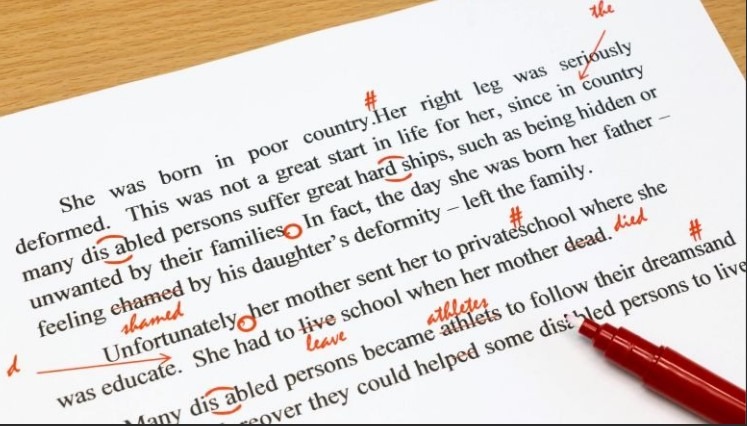 the
#
She was born in poor country.Her right leg was seriously
deformed. This was not a great start in life for her, since in country
many dis abled persons suffer great hard ships, such as being hidden or
unwanted by their families. In fact, the day she was born her father –
feeling chamed by his daughter's deformity – left the family.
shamed
# died #
Unfortunately, her mother sent her to privateschool where she
d
was educate. She had to live school when her mother dead.
leave athletes
Many dis abled persons became athlets to follow their dreamsand
they could helped some persons to live